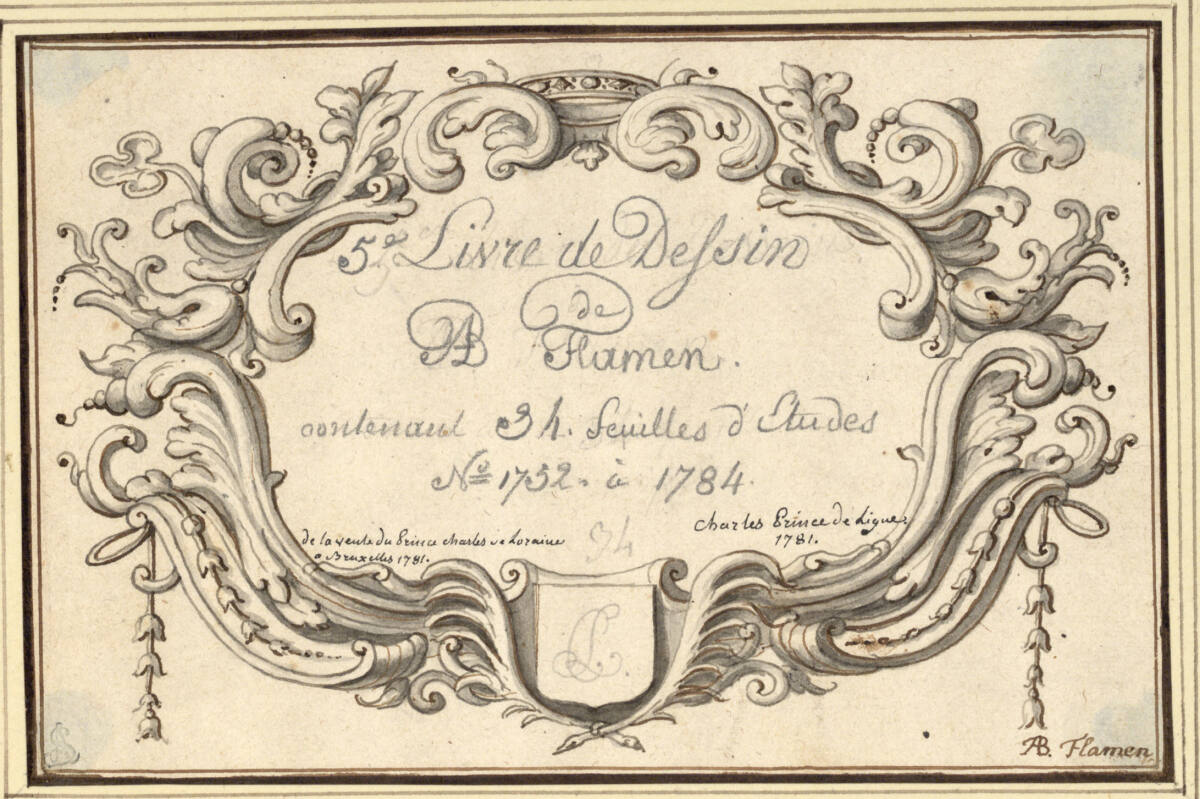 5e Livre de Dessin
de
AB Flamen.
contenant 34. feuilles d'Etudes
No 1752. à 1784.
34
de la vente du Prince Charles de Loraine
a Bruxelles 1781.
Charles Prince de Ligne
1781.
CL.
AB. Flamen